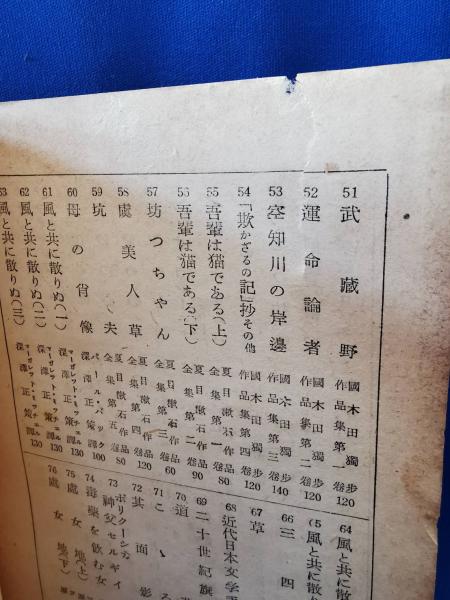 51 武蔵野 國木田獨步作品集第一卷 120
52 運命論者 國木田獨步作品集第二卷 120
53 空知川の岸邊 國木田獨步作品集第三卷 140
54 「欺かざるの記」抄その他 國木田獨步作品集第四卷 120
55 吾輩は猫である(上) 夏目漱石作品全集第一卷 80
56 吾輩は猫である(下) 夏目漱石作品全集第二卷 90
57 坊つちやん 夏目漱石作品全集第三卷 60
58 虞美人草 夏目漱石作品全集第四卷 120
59 坑夫 夏目漱石作品全集第五卷 80
60 母の肖像 パール・バック 深澤正策譯 100
61 風と共に散りぬ(一) マーガレット・ミッチェル 深澤正策譯 130
62 風と共に散りぬ(二) マーガレット・ミッチェル 深澤正策譯 130
63 風と共に散りぬ(三) マーガレット・ミッチェル 深澤正策譯 130
64 風と共に散
65 風と共に散り
66 三四
67 草
68 近代日本文学
69 二十世紀旗
70 道
71 こゝろ
72 其面影
73 ポリクーシカ 神父セルギイ
74 毒藥を飲む女
75 處女地(上)
76 處女地(下)